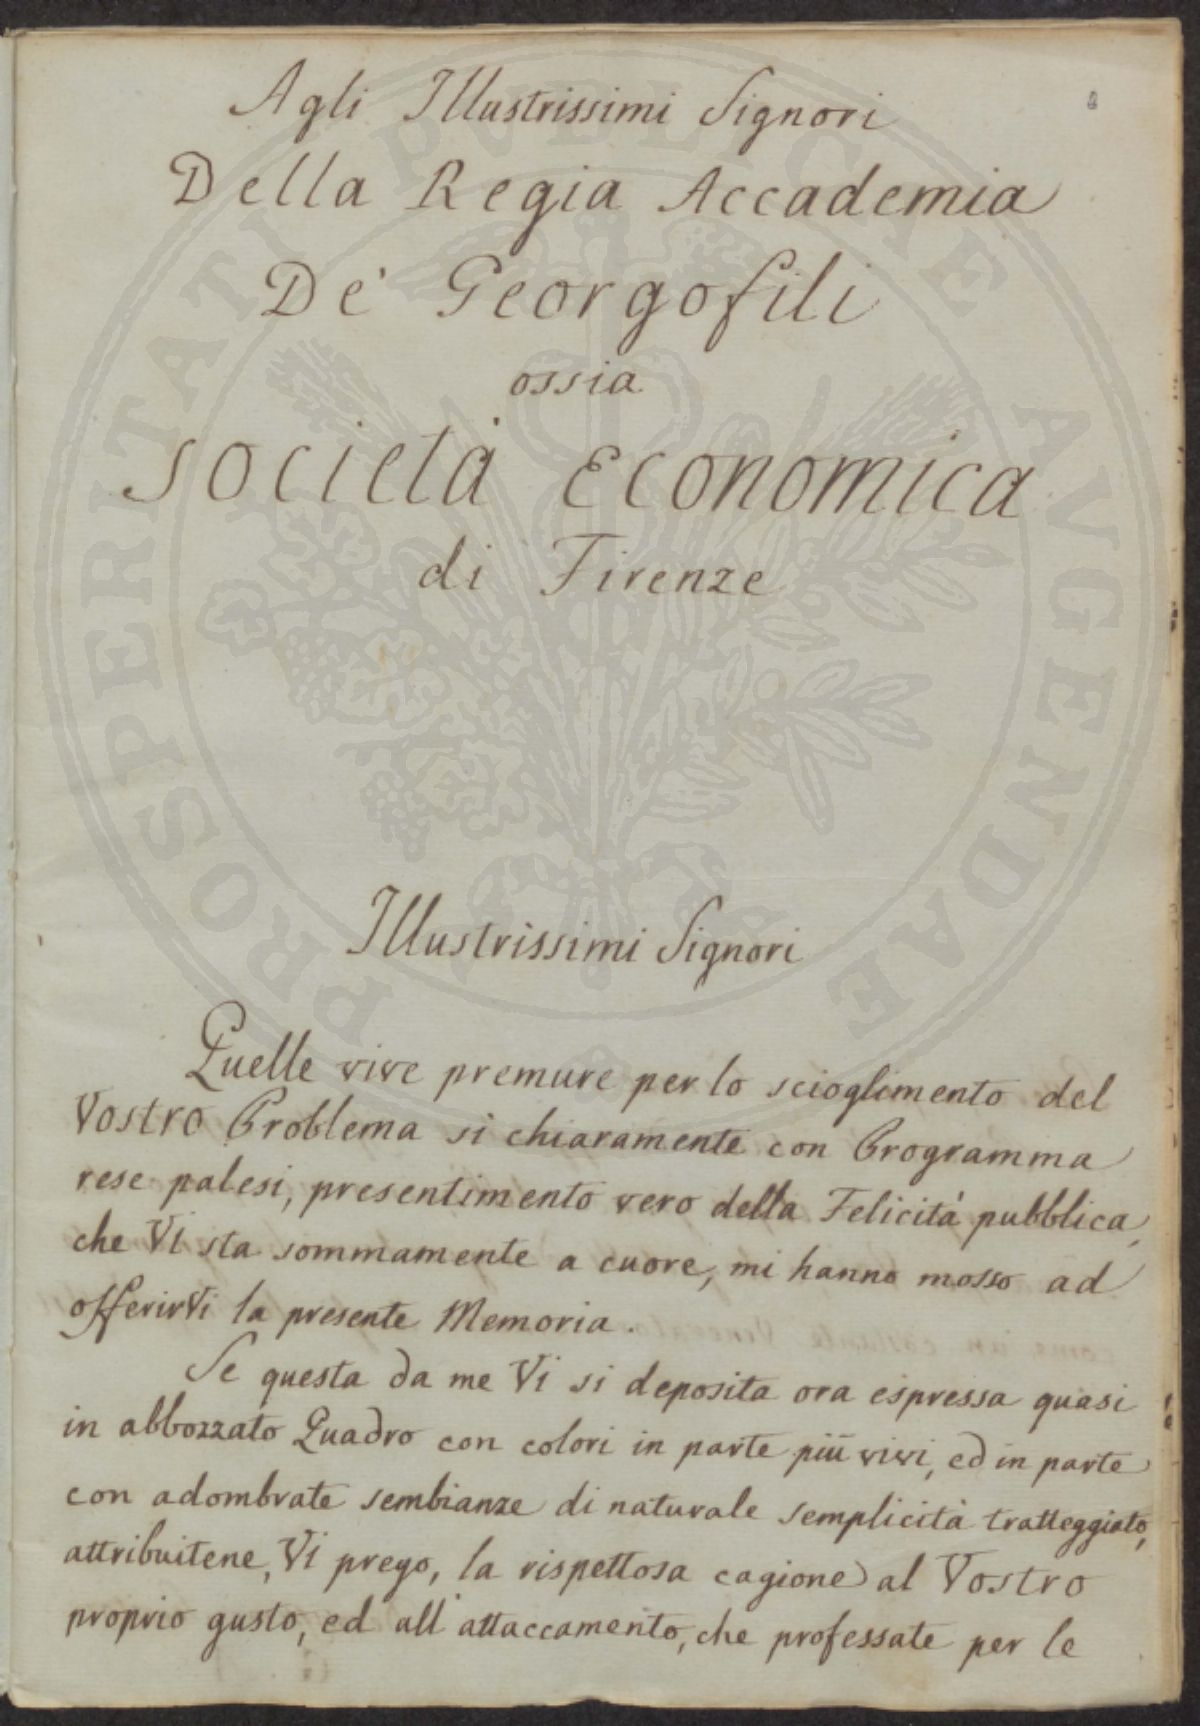 Agli Illustrissimi Signori
Della Regia Accademia
De' Georgofili
ossia
Società Economica
di Firenze
Illustrissimi Signori
Quelle vive premure per lo scioglimento del
Vostro Problema si chiaramente con Programma
rese palesi, presentimento vero della Felicità pubblica,
che Vi sta sommamente a cuore, mi hanno mosso ad
offerirVi la presente Memoria.
Se questa da me Vi si deposita ora espressa quasi
in abbozzato Quadro con colori in parte più vivi, ed in parte
con adombrate sembianze di naturale semplicità tratteggiato,
attribuitene, Vi prego, la rispettosa cagione al Vostro
proprio gusto, ed all'attaccamento, che professate per le
PROSPERITATI PUBLICAE AUGENDAE